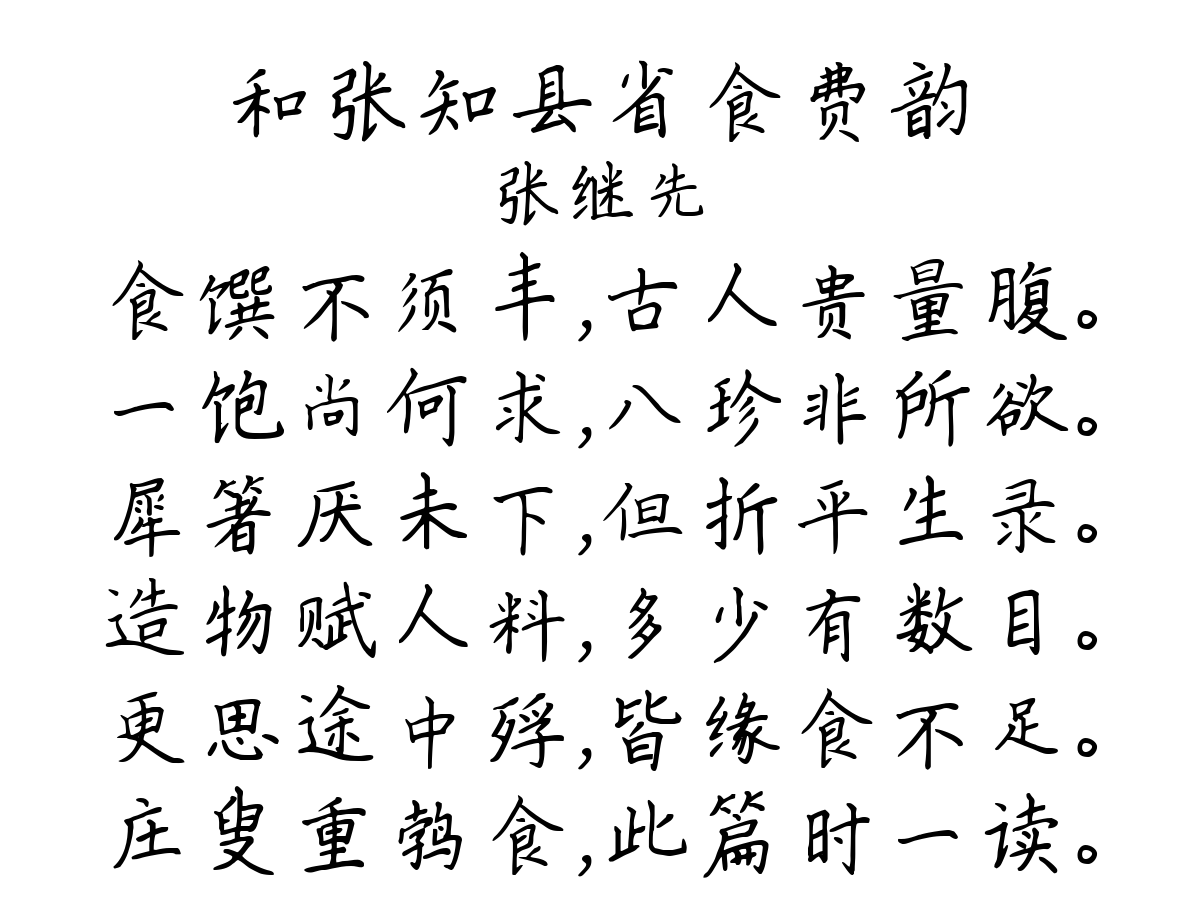 和张知县省食费韵
张继先
食馔不须丰,古人贵量腹。
一饱尚何求,八珍非所欲。
犀箸厌未下,但折平生录。
造物赋人料,多少有数目。
更思途中殍,皆缘食不足。
庄叟重鹑食,此篇时一读。